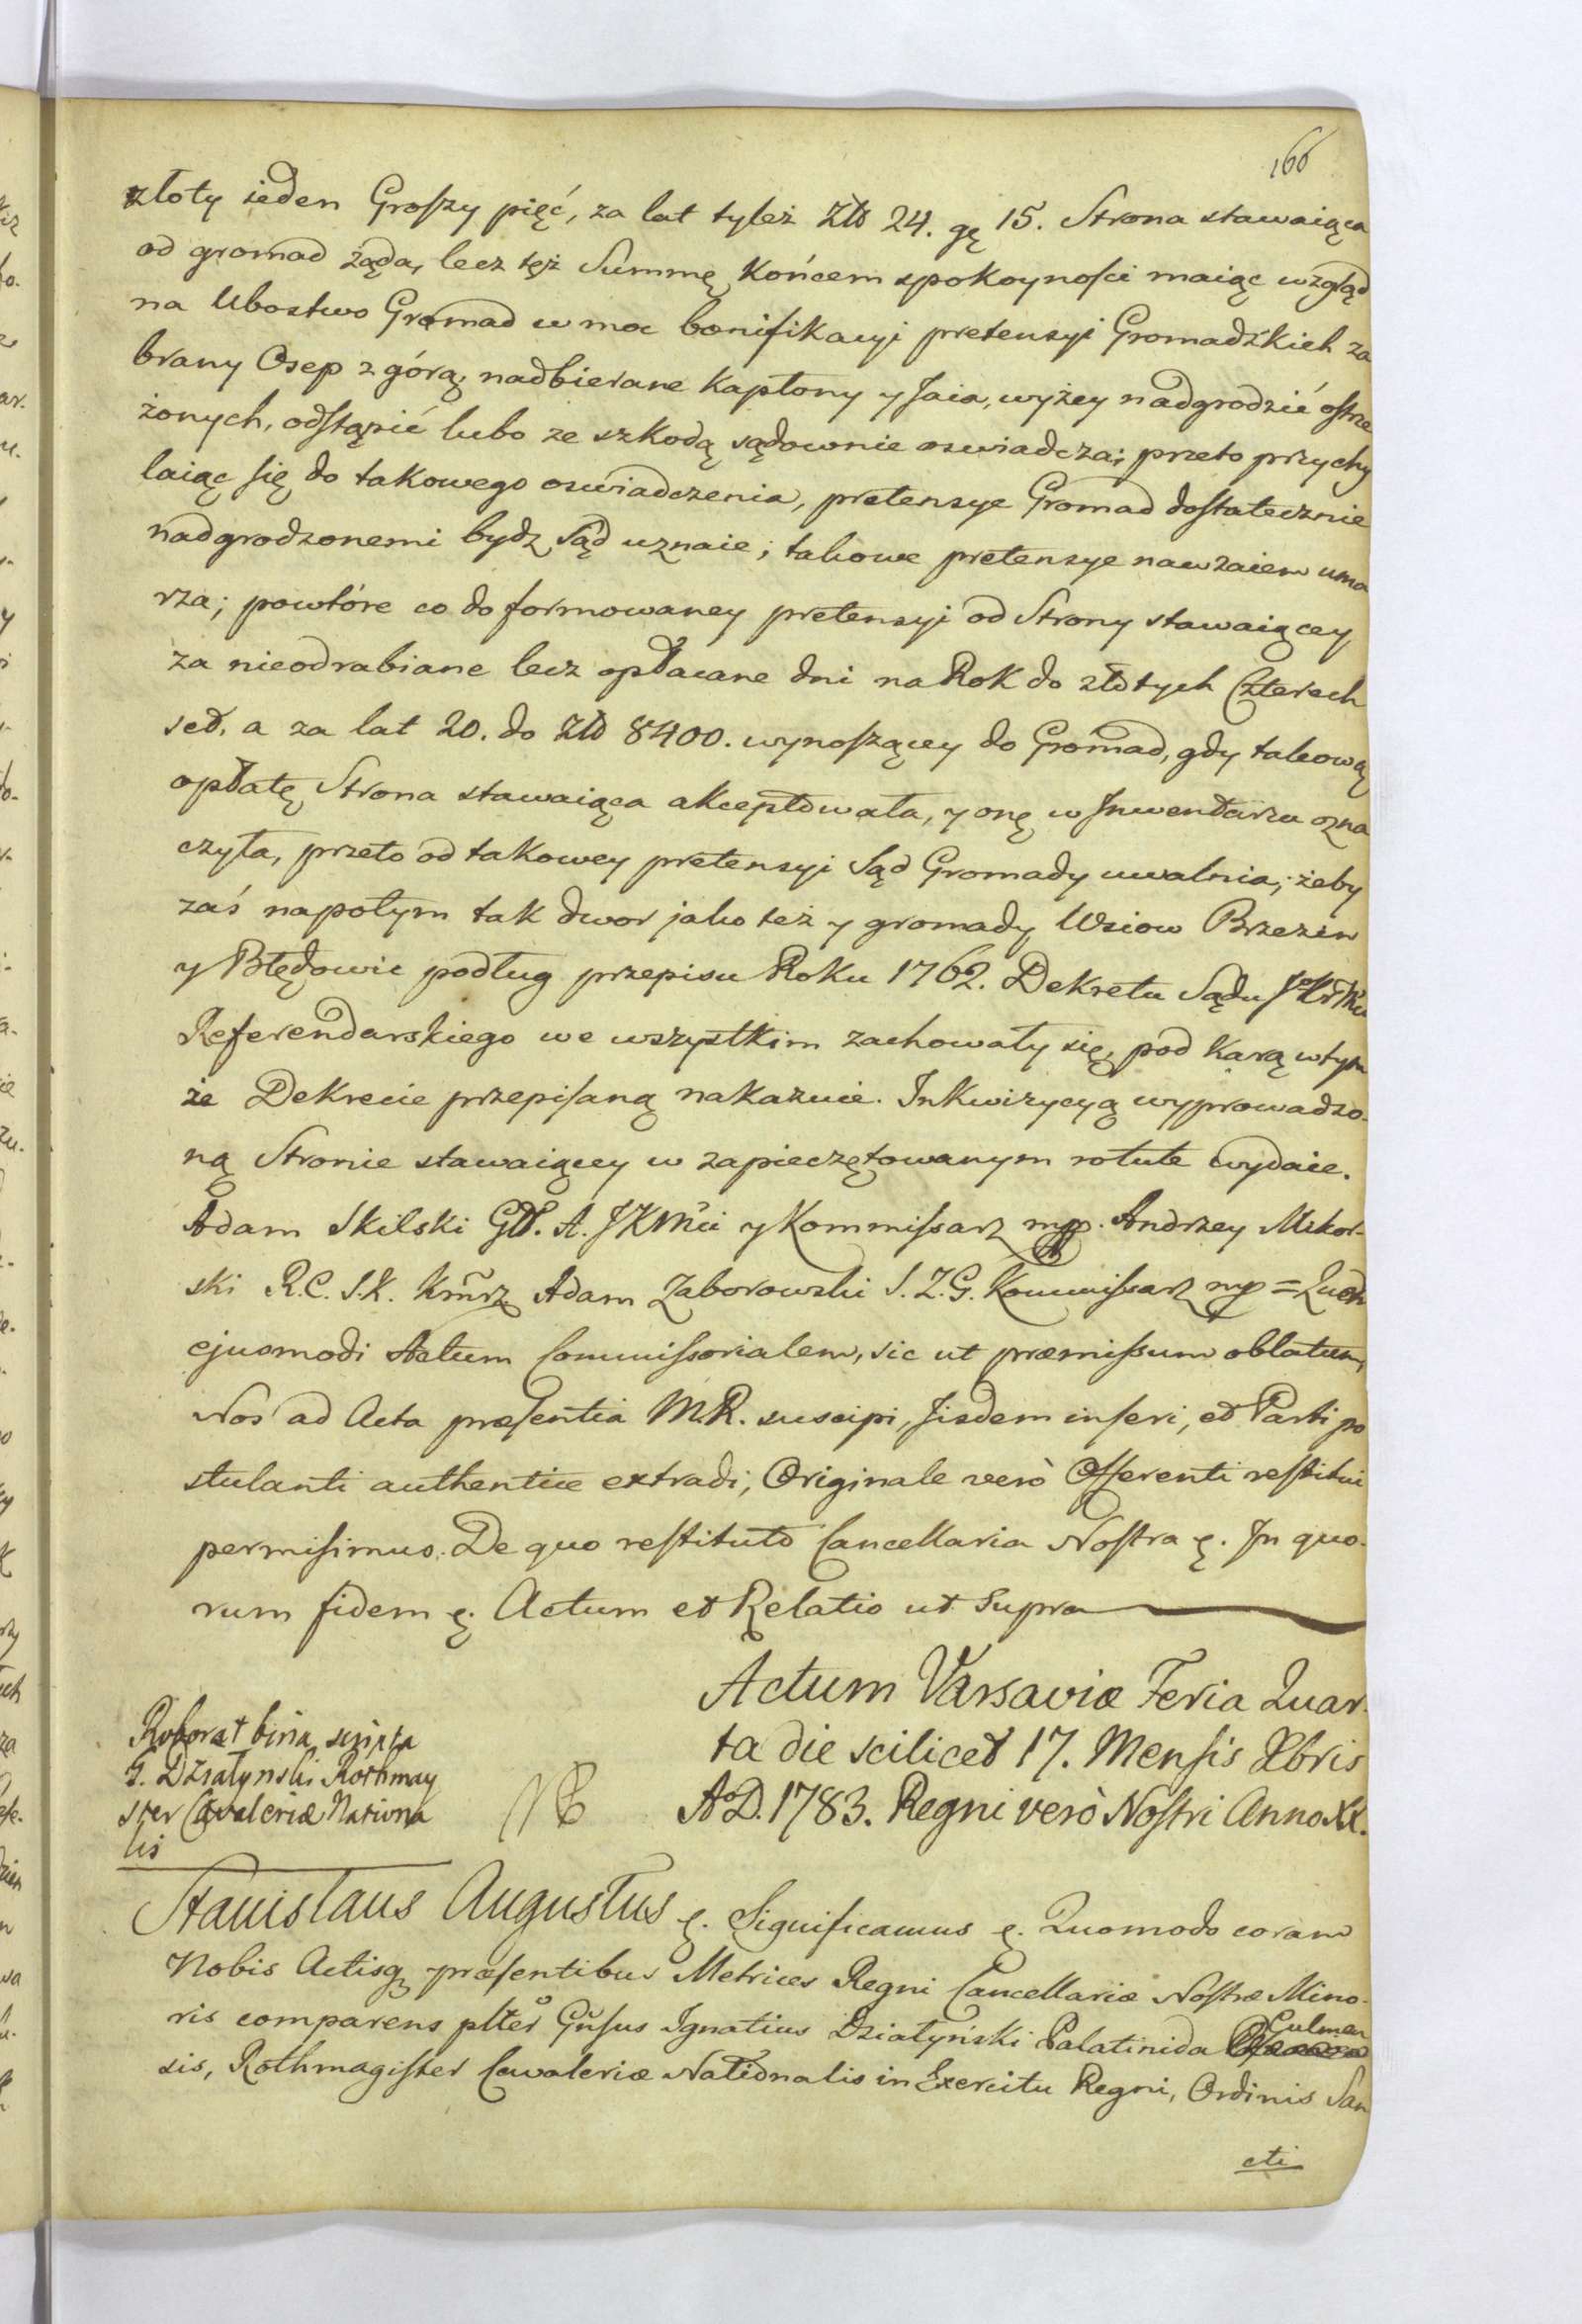 166
złoty ieden Groszy pięć, za lat tyleż Złł 24. gę 15. Strona stawaiąca
od gromad żąda, lecz tęż Summę końcem spokoyności maiąc wzgląd
na Ubostwo Gromad w moc bonifikacyi pretensyi Gromadzkich za
brany Osep z górą, nadbierane kapłony y Jaia, wyżey nadgrodzić ostrze
żonych, odstąpić lubo ze szkodą sądownie oswiadcza; przeto przychy
laiąc się do takowego oswiadczenia, pretensye Gromad dostatecznie
nadgrodzonemi bydz Sąd uznaie; takowe pretensye nawzaiem uma
rza; powtóre co do formowaney pretensyi od Strony stawaiącey
za nieodrabiane lecz opłacane dni na Rok do złotych Czterech
set, a za lat 20. do Złł 8400. wynoszącey do Gromad, gdy takową
opłatę Strona stawaiąca akceptowała, y onę w Inwentarzu ozna
czyła, przeto od takowey pretensyi Sąd Gromady uwalnia; żeby
zaś napotym tak dwor jako też y gromady Wsiow Brzezin
y Błędowic podług przepisu Roku 1762. Dekretu Sądu JKrMci
Referendarskiego we wszystkim zachowały się, pod karą w tym
że Dekrecie przepisaną nakazuie. Inkwizycyą wyprowadzo-
ną Stronie stawaiącey w zapieczętowanym rotule wydaie.
Adam Skilski GW. A. JKMci y Kommissarz mpp. Andrzey Mikor-
ski R.C. S.K. Kmrz Adam Zaborowski S.Z.G. Kommissarz mp = Quod
ejusmodi Actum Commissorialem, sic ut præmissum oblatum,
Nos ad Acta præsentia M.R. suscipi, Iisdem inseri, et Parti po
stulanti authentice extradi, Originale verò Offerenti restitui
permisimus. De quo restituto Cancellaria Nostra ę. In quo-
rum fidem ę. Actum et Relatio ut Supra
Actum Varsaviæ Feria Quar-
ta die scilicet 17. Mensis Xbris
A.D. 1783. Regni verò Nostri Anno XX.
Roborat bina scripta
G. Działynski Rothmay
ster Cavaleriæ Nationa
lis
NB
Stanislaus Augustus ę. Significamus ę. Quomodo coram
Nobis Actisq præsentibus Metrices Regni Cancellariæ Nostræ Mino-
ris comparens plter Gnsus Ignatius Działyński Palatinida Culmen
sis, Rothmagister Cavaleriæ Nationalis in Exercitu Regni, Ordinis San
cti